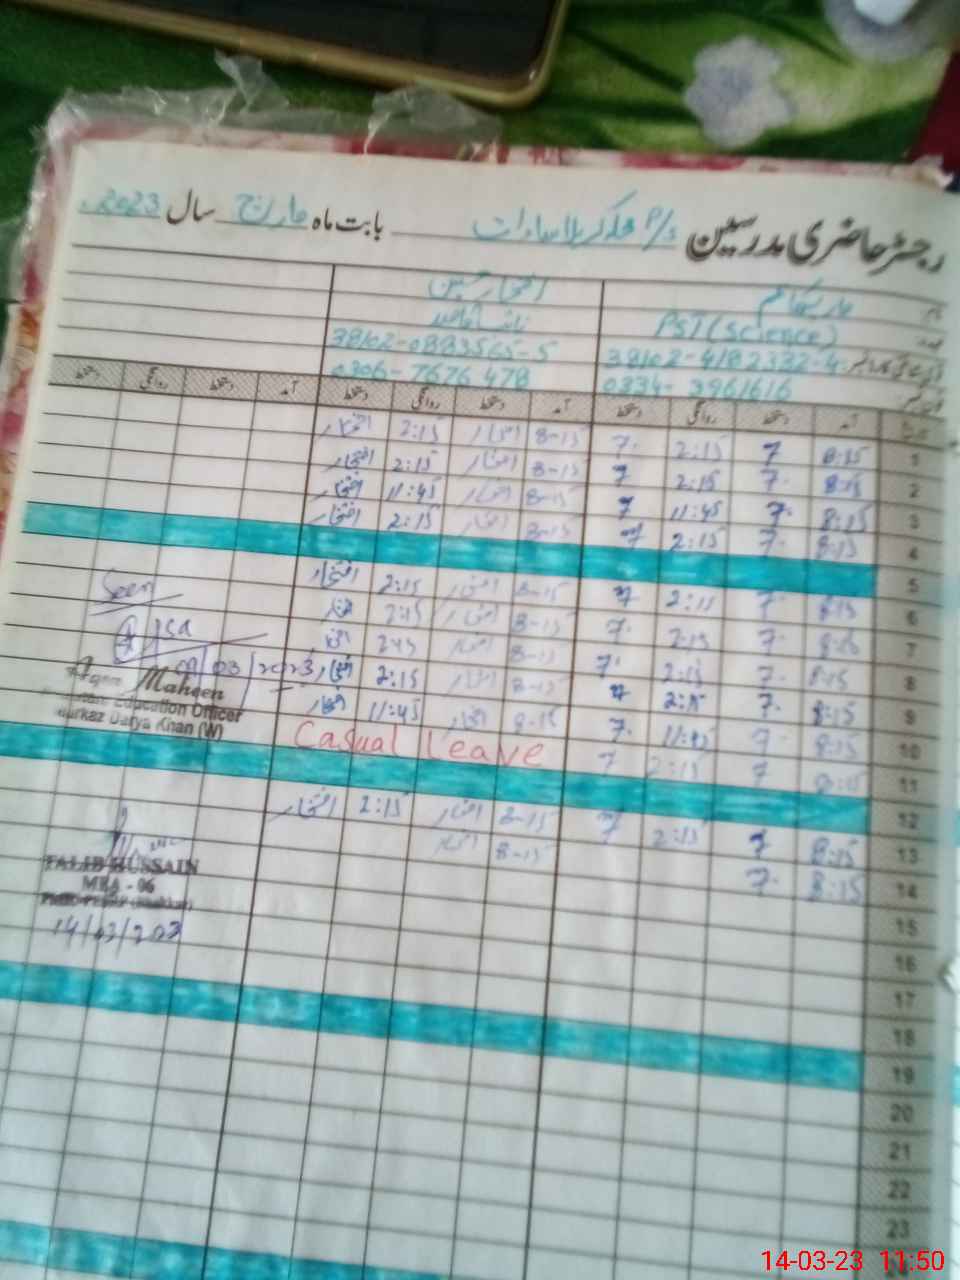 رجسٹر حاضری مدرسین P/S بابت ماہ مارچ سال 2023
افتخار حسین
PST (Science)
38102-0883565-5 38102-4182332-4
0306-7676478 0334-3961616
آمد دستخط روانگی دستخط آمد دستخط روانگی دستخط آمد دستخط روانگی دستخط
1 8:15 7 2:15 7 8-15 افتخار 2:15 افتخار
2 8:15 7 2:15 7 8-15 افتخار 2:15 افتخار
3 8:15 7 11:45 7 8-15 افتخار 11:45 افتخار
4 8:15 7 2:15 7 8-15 افتخار 2:15 افتخار
5
6 8:15 7 2:15 7 8-15 افتخار 2:15 افتخار
7 8:15 7 2:15 7 8-15 افتخار 2:15 افتخار
8 8:15 7 2:15 7 8-15 افتخار 2:15 افتخار
9 8:15 7 2:15 7 8-15 افتخار 2:15 افتخار
10 8:15 7 11:45 7 8-15 افتخار 11:45 افتخار
11 8:15 7 2:15 7 Casual Leave
12
13 8:15 7 2:15 7 8-15 افتخار 2:15 افتخار
14 8:15 7 8-15 افتخار
15
16
17
18
19
20
21
22
23
Seen
03/2023
Maheen
Education Officer
Markaz Darya Khan (W)
TALIB HUSSAIN
MEA - 06
14/03/202
14-03-23 11:50